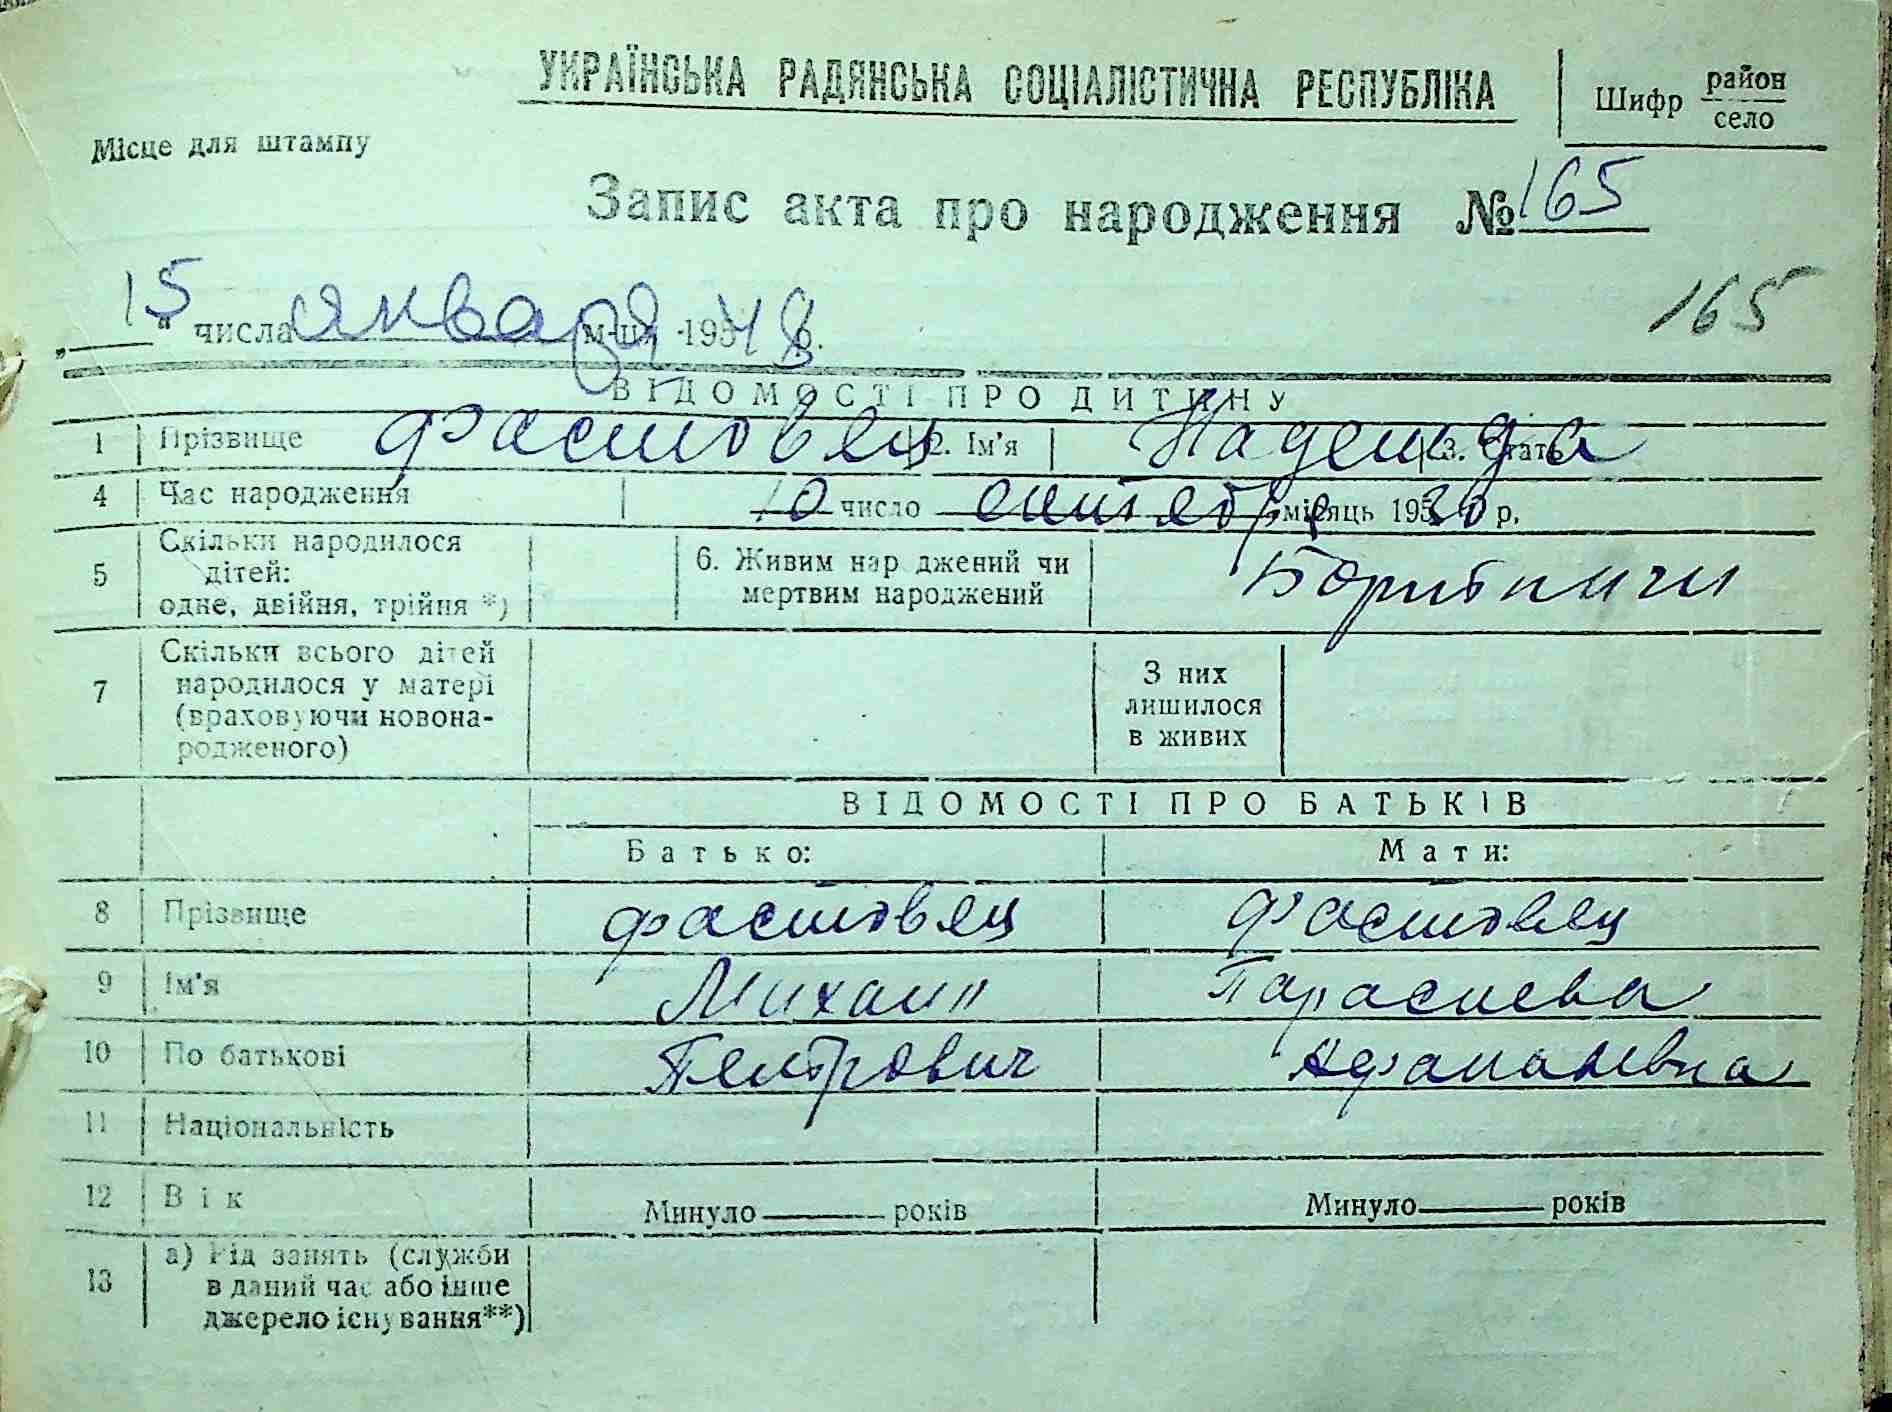 УКРАЇНСЬКА РАДЯНСЬКА СОЦІАЛІСТИЧНА РЕСПУБЛІКА
Шифр район
село
Місце для штампу
Запис акта про народження № 165
165
„15“ числа января м-ця 1948 р.
ВІДОМОСТІ ПРО ДИТИНУ
1 Прізвище Фастовец 2. Ім'я Надежда 3. Стать
4 Час народження 10 число сентября місяць 1930 р.
5 Скільки народилося дітей: одне, двійня, трійня *) 6. Живим народжений чи мертвим народжений
7 Скільки всього дітей народилося у матері (враховуючи новонародженого) З них лишилося в живих
ВІДОМОСТІ ПРО БАТЬКІВ
Батько: Мати:
8 Прізвище Фастовец Фастовец
9 Ім'я Михаил
10 По батькові Петрович
11 Національність
12 Вік Минуло років Минуло років
13 а) Рід занять (служби в даний час або інше джерело існування**)